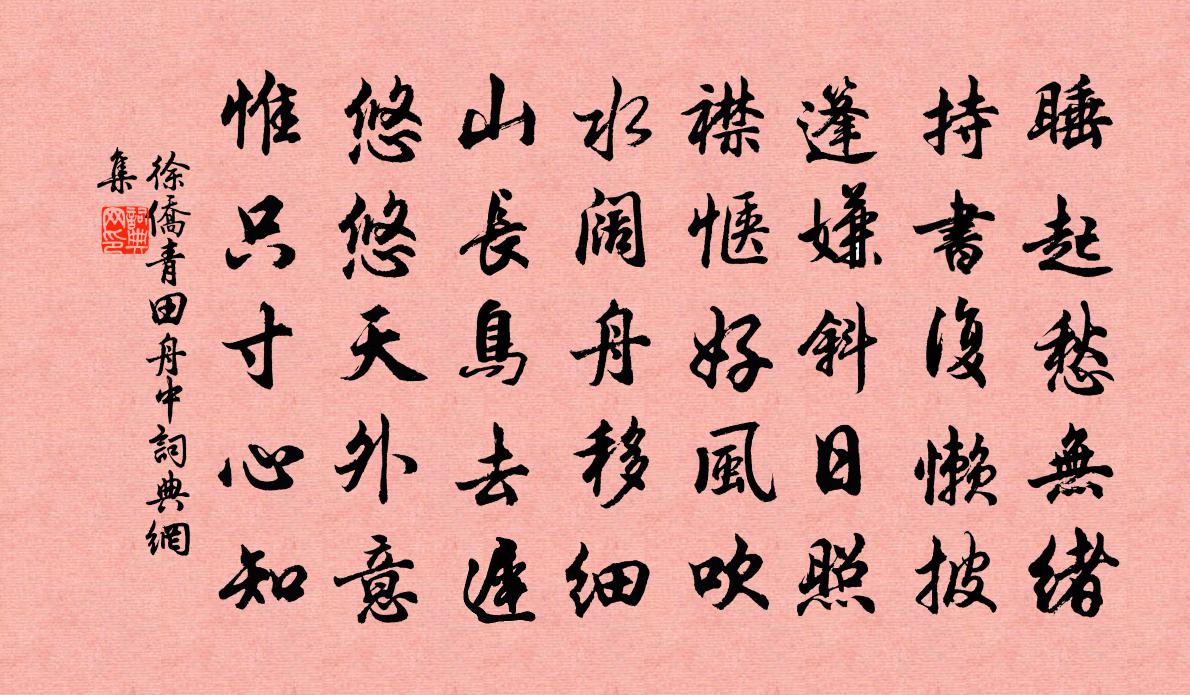 睡起愁無緒
持書復懶披
篷嫌斜日照
襟愜好風吹
水阔舟移細
山長鳥去遲
悠悠天外意
惟只寸心知
徐僑青田舟中詞典網
集
詞典
网印